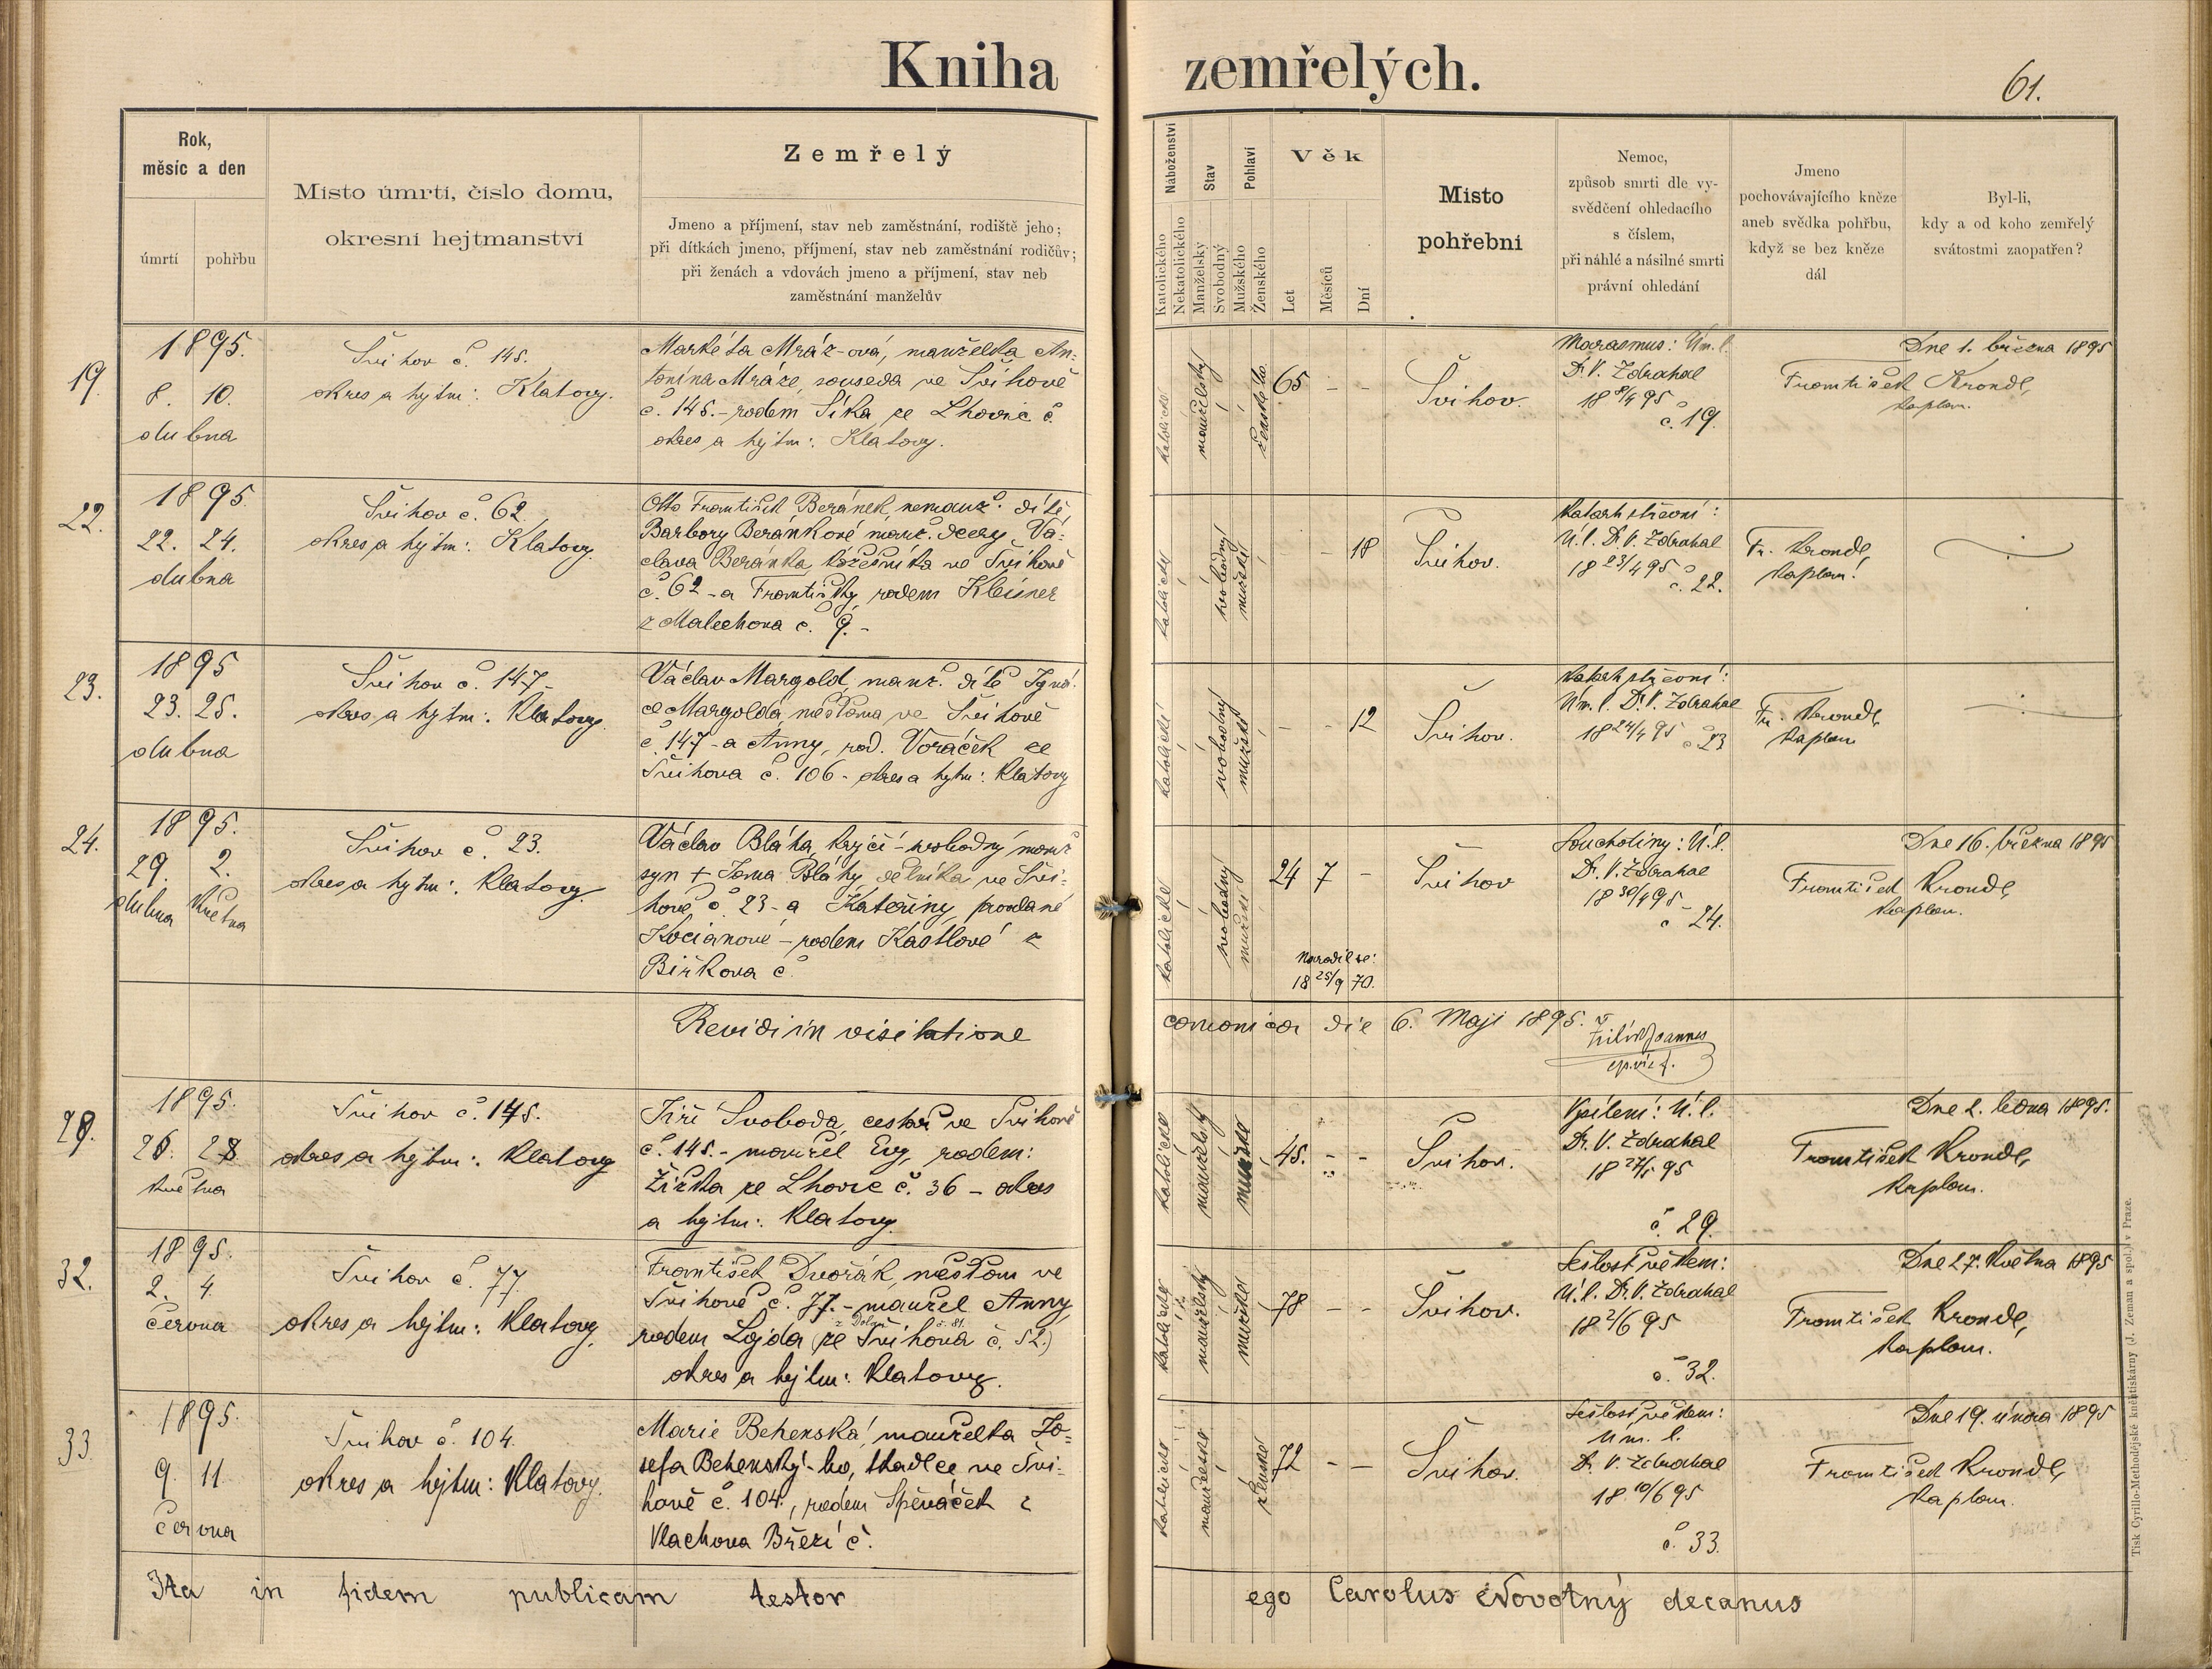 Kniha zemřelých.
61.
Rok,
měsíc a den
úmrtí
pohřbu
Místo úmrtí, číslo domu,
okresní hejtmanství
Zemřelý
Jmeno a příjmení, stav neb zaměstnání, rodiště jeho;
při dítkách jmeno, příjmení, stav neb zaměstnání rodičův;
při ženách a vdovách jmeno a příjmení, stav neb
zaměstnání manželův
Náboženství
Katolického
Nekatolického
Stav
Manželský
Svobodný
Pohlaví
Mužského
Ženského
Věk
Let
Měsíců
Dní
Místo
pohřební
Nemoc,
způsob smrti dle vy-
svědčení ohledacího
s číslem,
při náhlé a násilné smrti
právní ohledání
Jmeno
pochovávajícího kněze
aneb svědka pohřbu,
když se bez kněze
dál
Byl-li,
kdy a od koho zemřelý
svátostmi zaopatřen?
19.
1895.
8. 10.
dubna
Švihov č. 145.
okres a hejtm: Klatovy.
Markéta Mráz-ová, manželka An-
tonína Mráze, souseda ve Švihově
č. 145.- rodem Síka ze Lhovic č.
okres a hejtm: Klatovy.
katolické
manželský
ženského
65 - -
Švihov.
Marasmus: Úm. l.
Dr. V. Zdrahal
18 8/4 95
č. 19.
Dne 1. března 1895
František Krondl,
kaplan.
22.
1895.
22. 24.
dubna
Švihov č. 62
okres a hejtm: Klatovy.
Otto František Beránek, nemanž. dítě
Barbory Beránkové manž. dcery Vá-
clava Beránka, ve Švihově
č. 62 - a Františky, rodem Kleisner
z Malechova č. 9. -
katolické
svobodný
mužské
- - 18
Švihov.
Katarh střevní:
Ú. l. Dr. V. Zdrahal
18 23/4 95
č. 22.
Fr. Krondl,
kaplan.
23.
1895
23. 25.
dubna
Švihov č. 147-
okres a hejtm: Klatovy.
Václav Margold, manž. dítě Igná-
ce Margolda, měšťana ve Švihově
č. 147 - a Anny, rod. Voráček ze
Švihova č. 106 - okres a hejtm: Klatovy
katolické
svobodný
mužské
- - 12
Švihov.
Katarh střevní:
Úm. l. Dr. V. Zdrahal
18 24/4 95
č. 23
Fr. Krondl,
kaplan
24.
1895.
29. 2.
dubna května
Švihov č. 23.
okres a hejtm: Klatovy.
Václav Bláha, krejčí - svobodný manž
syn + Jana Bláhy dělníka ve Švi-
hově č. 23 - a Kateřiny, provdané
Kocianové - rodem Kastlové z
Biřkova č.
katolické
svobodný
mužské
24 7 -
Narodil se:
18 25/9 70.
Švihov
Souchotiny: Ú. l.
Dr. V. Zdrahal
18 30/4 95
č. 24.
Dne 16. března 1895
František Krondl,
kaplan.
Revidi in visitatione canonica die 6. Maji 1895.
Joannes
29.
1895.
26. 28
května
Švihov č. 145.
okres a hejtm: Klatovy
Jiří Svoboda, cestář ve Švihově
č. 145.- manžel Evy, rodem:
Žižka ze Lhovic č. 36 - okres
a hejtm: Klatovy.
katolické
manželský
mužské
45. - -
Švihov.
Ú. l.
Dr. V. Zdrahal
18 27/5 95
č. 29.
Dne 2. ledna 1895.
František Krondl,
kaplan.
32.
1895.
2. 4.
června
Švihov č. 77.
okres a hejtm: Klatovy.
František Dvořák, měšťan ve
Švihově č. 77.- manžel Anny,
rodem Lojda (ze Švihova č. 52.)
okres a hejtm: Klatovy.
katolické
manželský
mužské
78 - -
Švihov.
Sešlost věkem:
Ú. l. Dr. V. Zdrahal
18 2/6 95
č. 32.
Dne 27. května 1895
František Krondl,
kaplan.
33
1895.
9. 11.
června
Švihov č. 104.
okres a hejtm: Klatovy.
Marie Behenská, manželka Jo-
sefa Behenský-ho, tkadlce ve Švi-
hově č. 104., rodem Spěváček z
Vlachova Březí č.
katolické
manželské
ženské
72 - -
Švihov.
Sešlost věkem:
Úm. l.
Dr. V. Zdrahal
18 10/6 95
č. 33.
Dne 19. února 1895
František Krondl,
kaplan.
Ita in fidem publicam testor ego Carolus Novotný decanus
Tisk Cyrillo-Methodějské knihtiskárny (J. Zeman a spol.) v Praze.